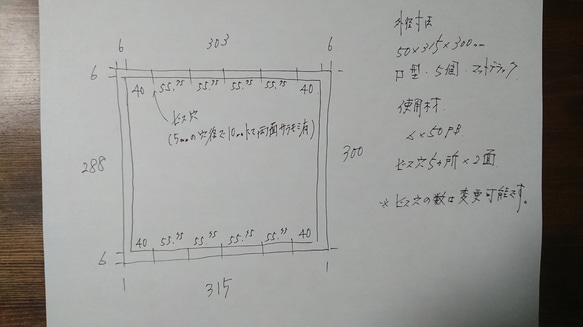 6 303 6
6
40 55.75 55.75 55.75 55.75 40
ビス穴
(5mmの穴径で10mmまで両面サラモミ有)
288
300
40 55.75 55.75 55.75 55.75 40
6
1 315 1
外径寸法
50×315×300mm
ロ型・5個・マットブラック
使用材
6×50 FB
ビス穴5ヶ所×2面
※ビス穴の数は変更可能です。